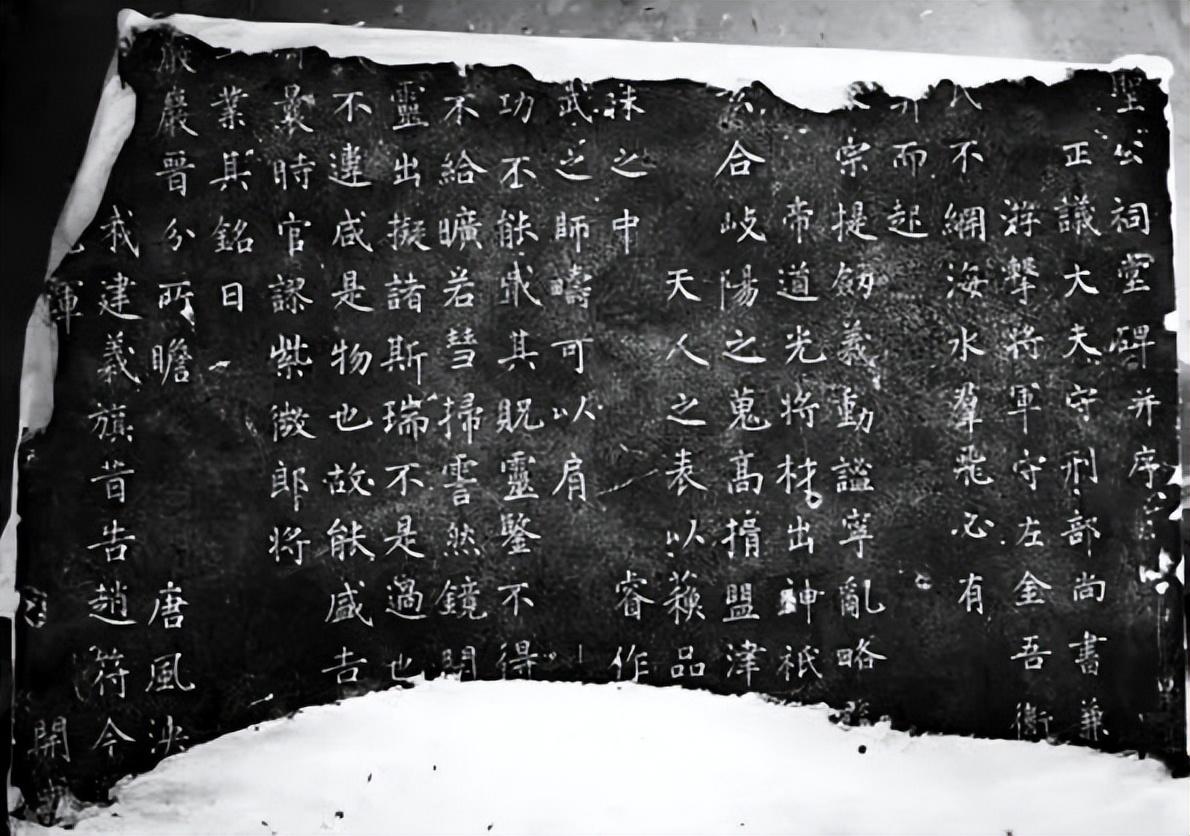 聖公祠堂碑并序
正議大夫守刑部尚書兼
游擊將軍守左金吾衛
不綱海水羣飛必有
而起
宗提劔義動謐寧亂略
帝道光將材出神祇
合岐陽之蒐高捐盟津
天人之表以蘓品
之中 睿作
武之師疇可以肩
功丕能盛其貺靈鑒不得
不給曠若彗掃霅然鏡開
靈出擬諸斯瑞不是過也
不違感是物也故能感吉
曩時官謬紫微郎將
業其銘曰
巖晉分所瞻 唐風
我建義旗昔告趙符今
渾 開